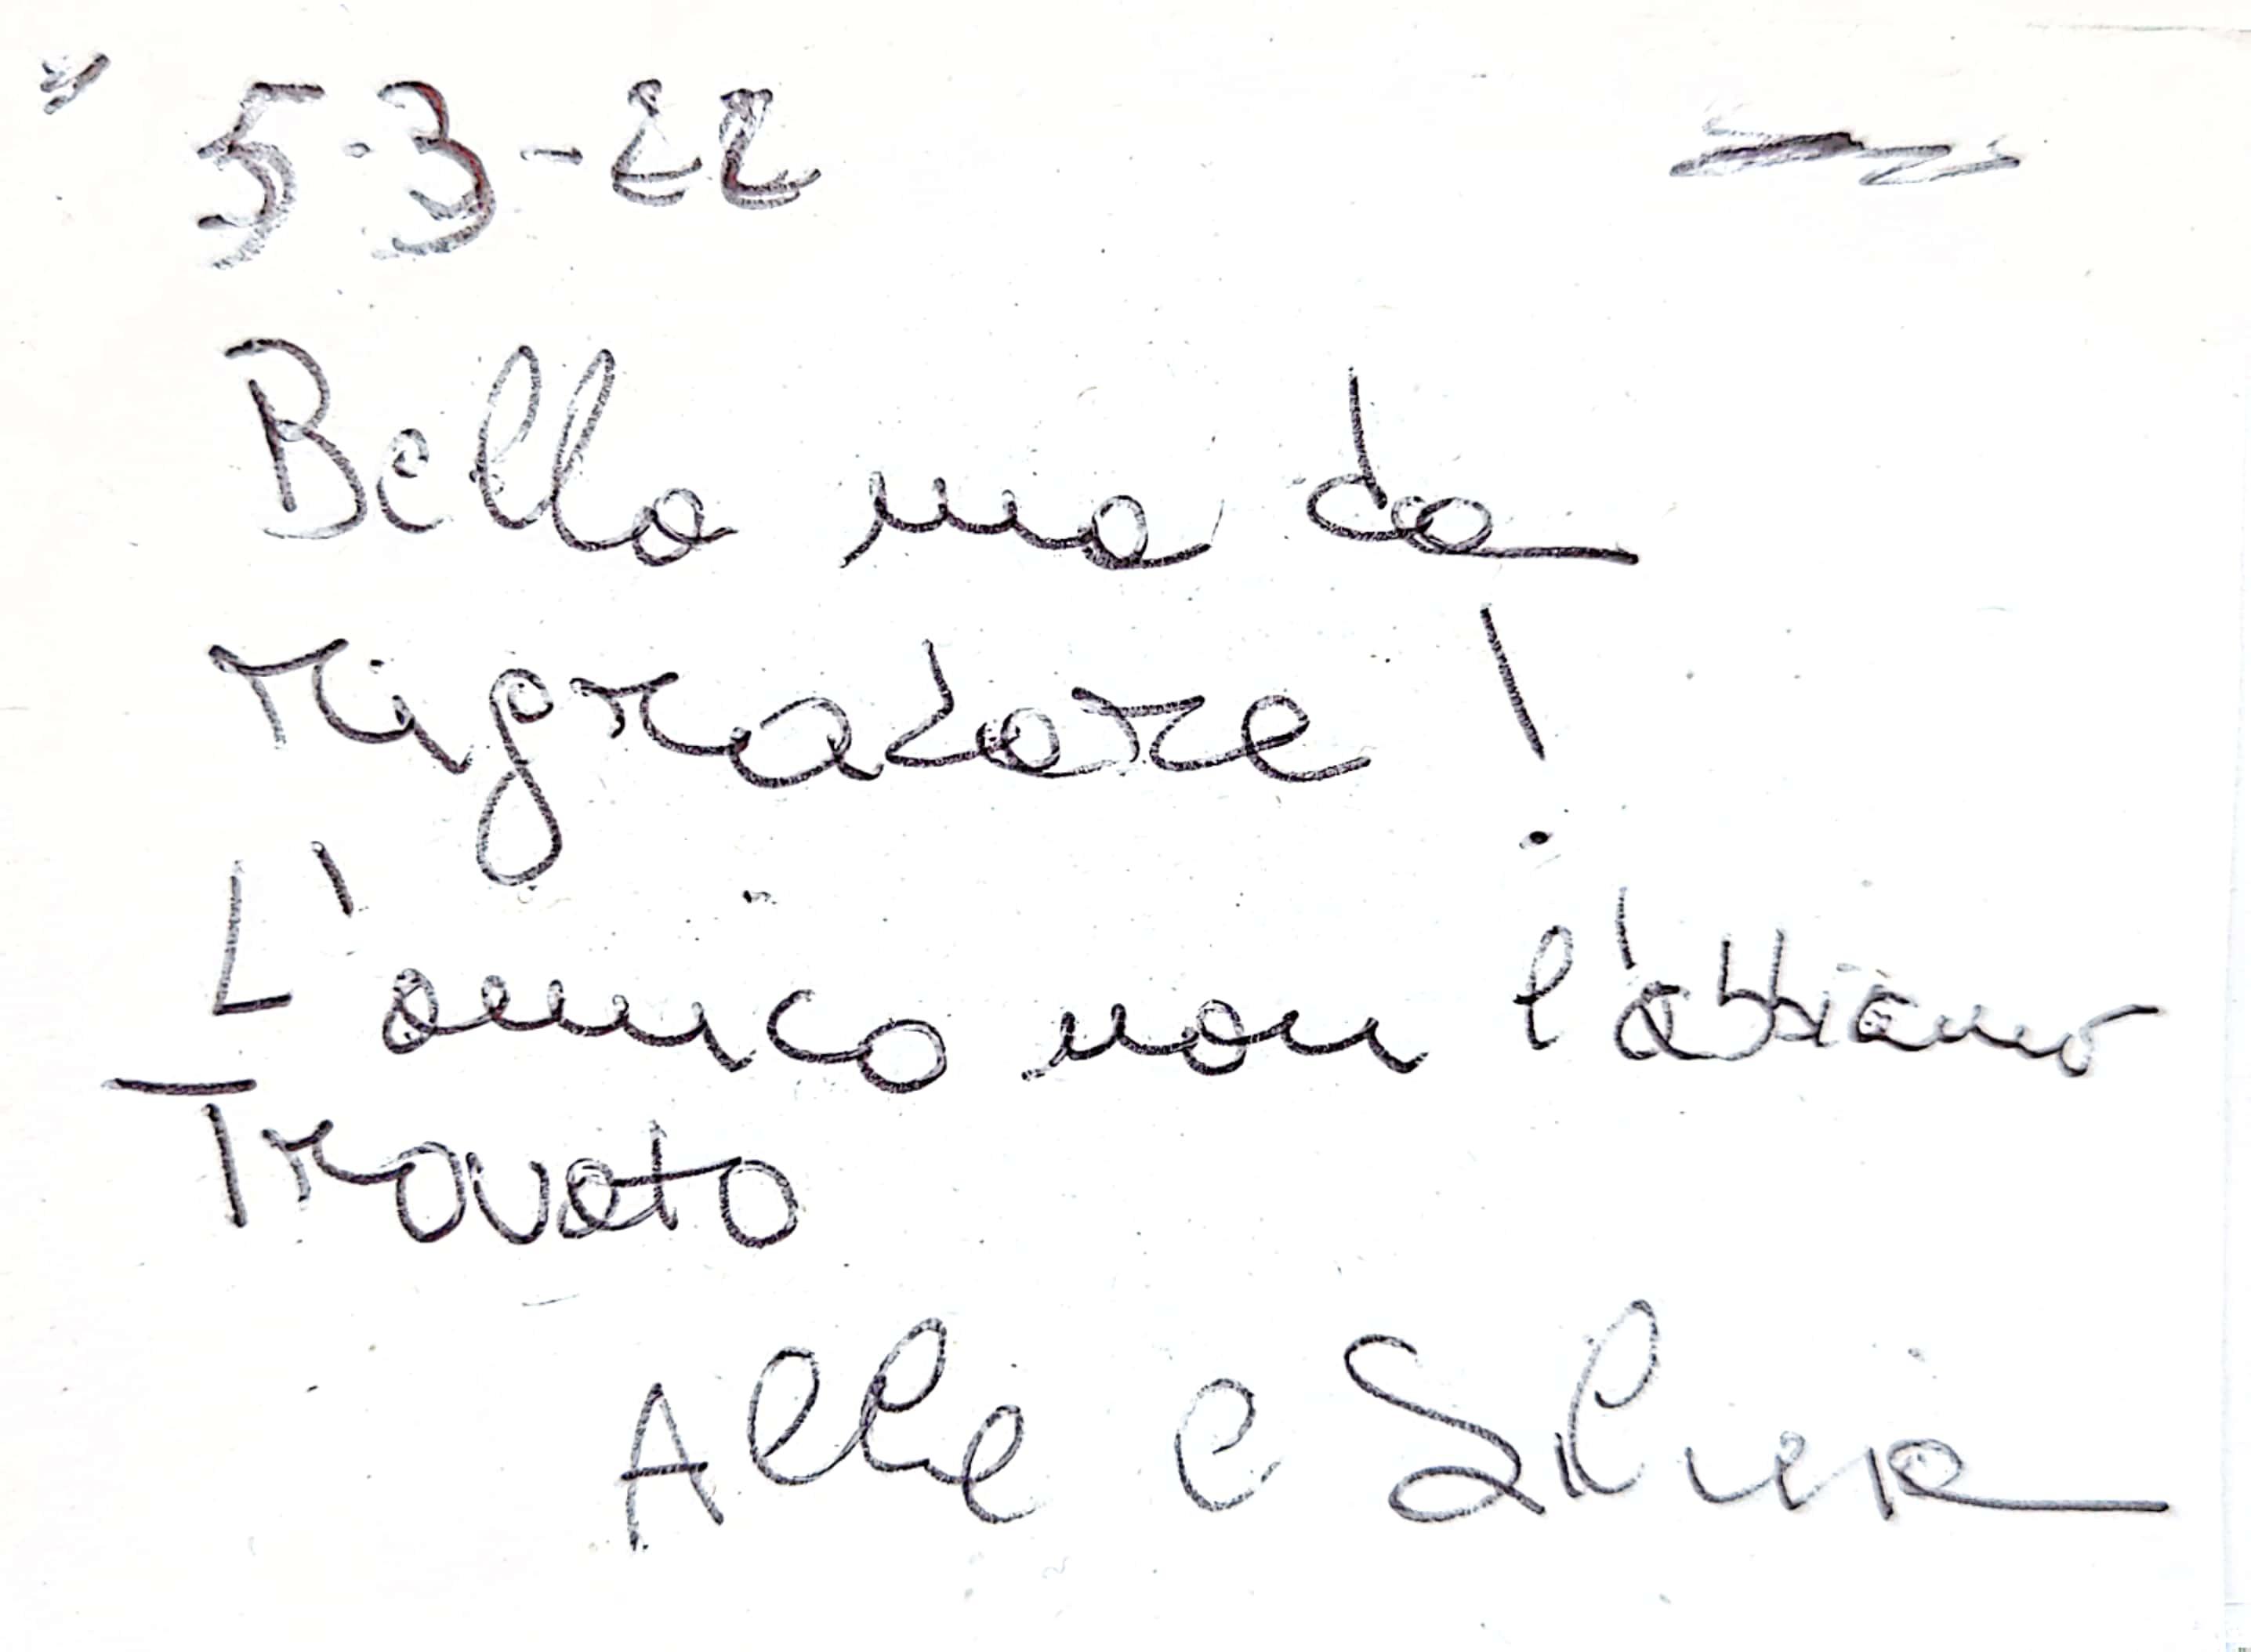 5-3-22
Bella ma da
!
L'amico non l'abbiamo
Trovato
Alle e Silvia